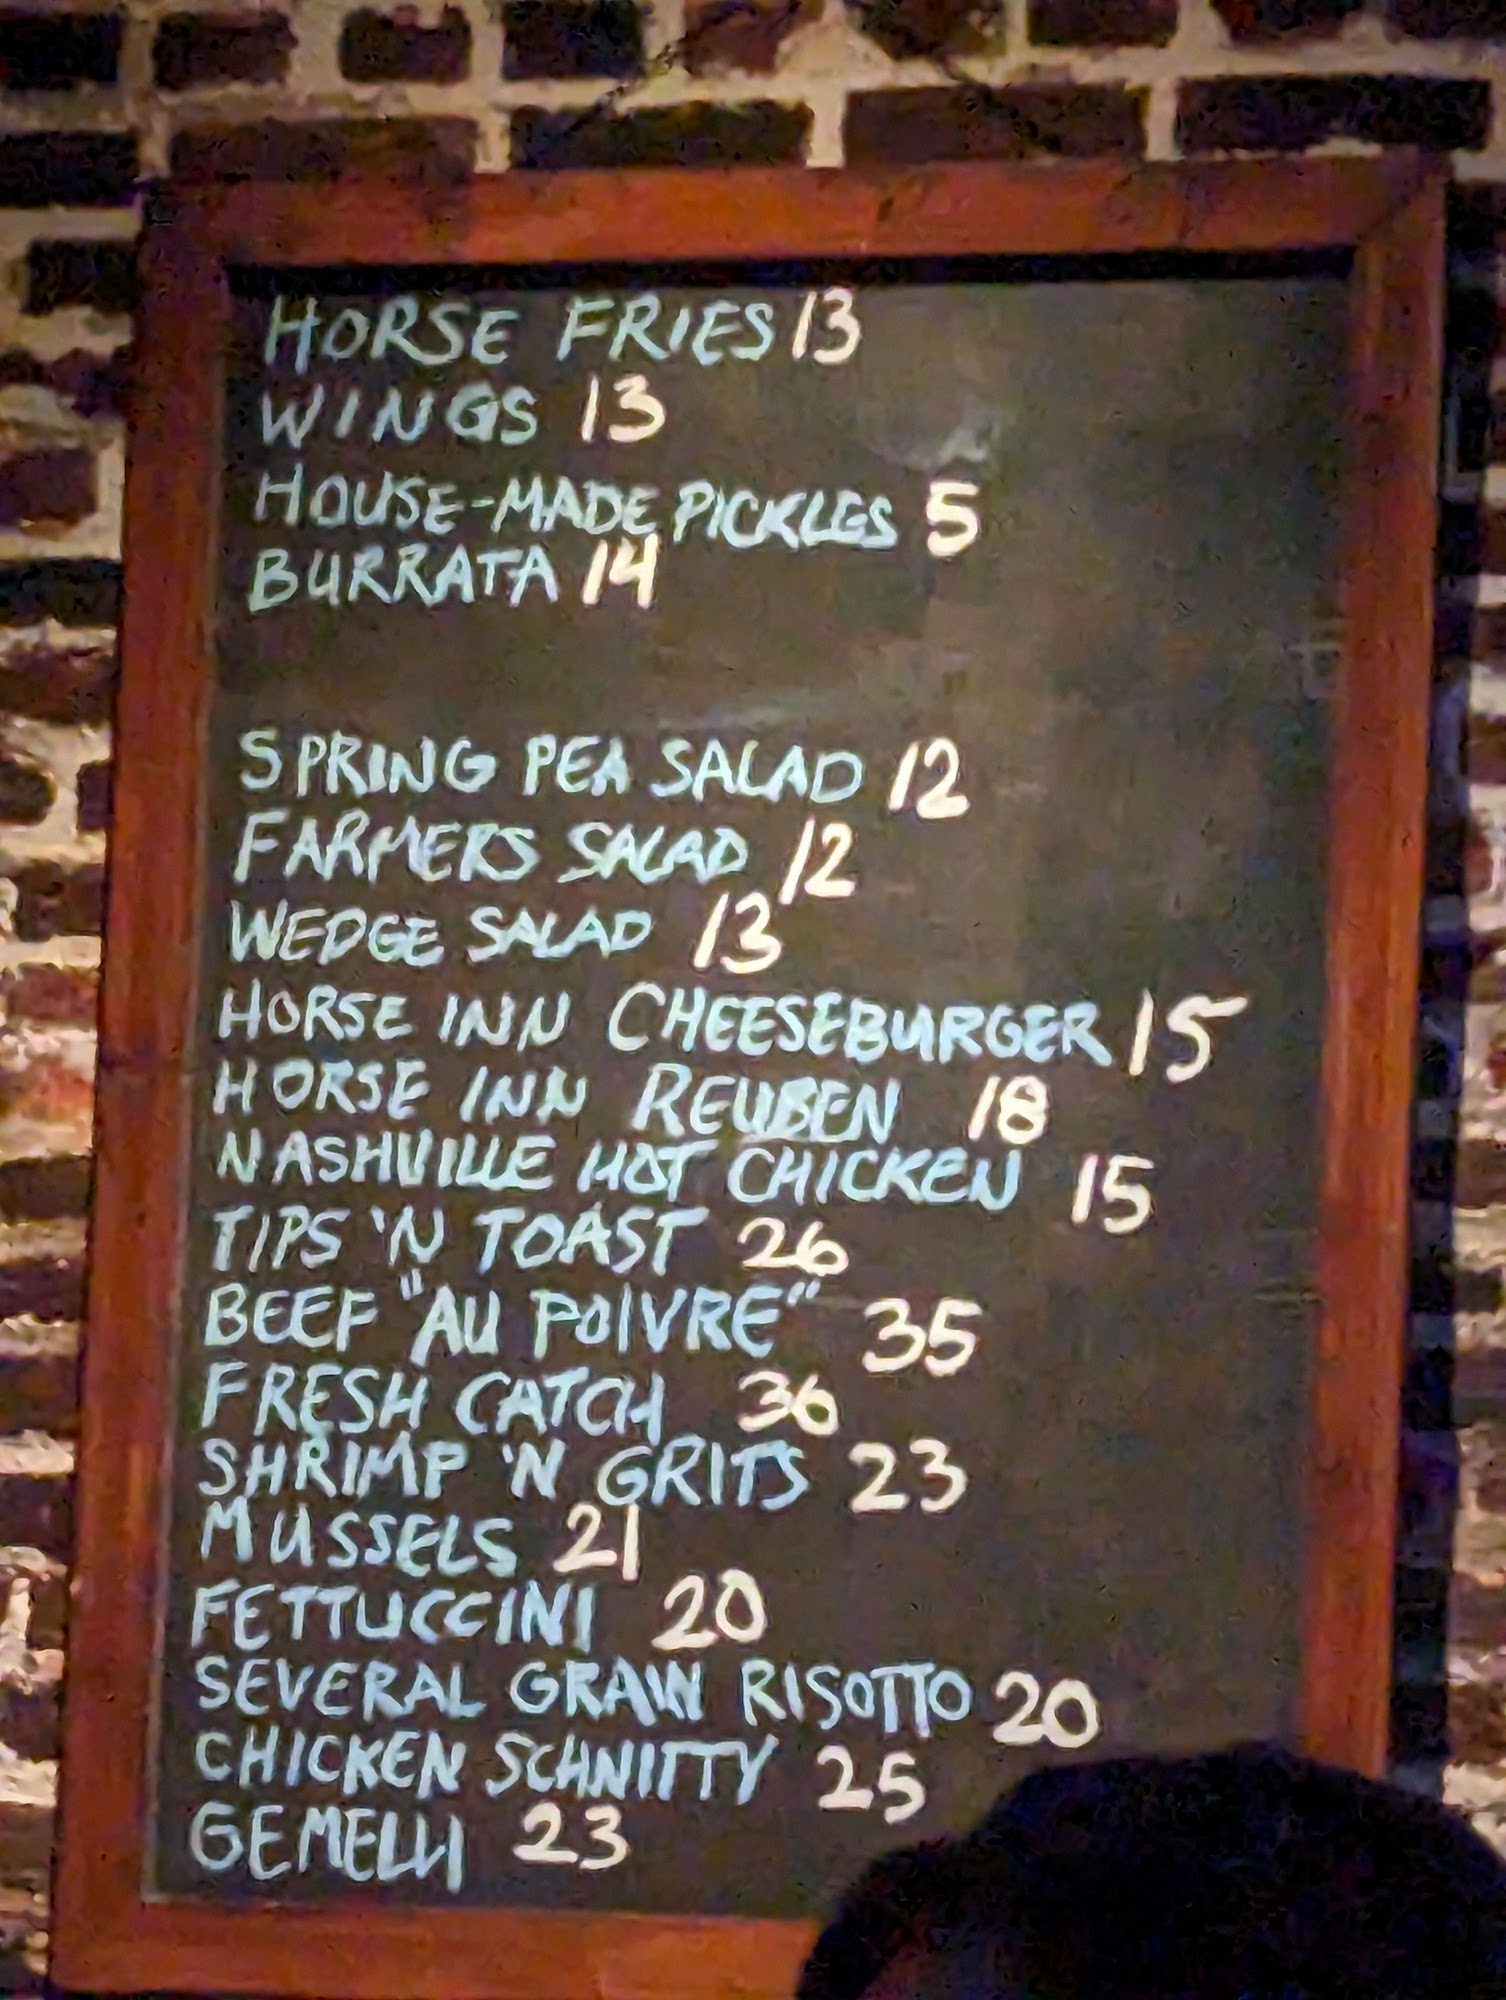 HORSE FRIES 13
WINGS 13
HOUSE-MADE PICKLES 5
BURRATA 14
SPRING PEA SALAD 12
FARMERS SALAD 12
WEDGE SALAD 13
HORSE INN CHEESEBURGER 15
HORSE INN REUBEN 18
NASHVILLE HOT CHICKEN 15
TIPS 'N TOAST 26
BEEF "AU POIVRE" 35
FRESH CATCH 36
SHRIMP 'N GRITS 23
MUSSELS 21
FETTUCCINI 20
SEVERAL GRAIN RISOTTO 20
CHICKEN SCHNITTY 25
GEMELLI 23